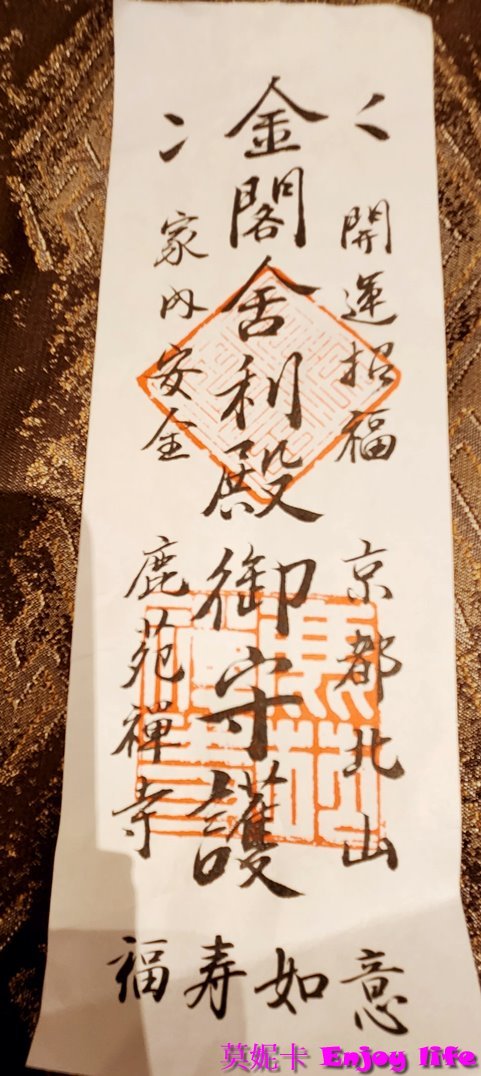 開運招福 京都北山
金閣舍利殿御守護
家内安全 鹿苑禅寺
意如寿福
莫妮卡 Enjoy life